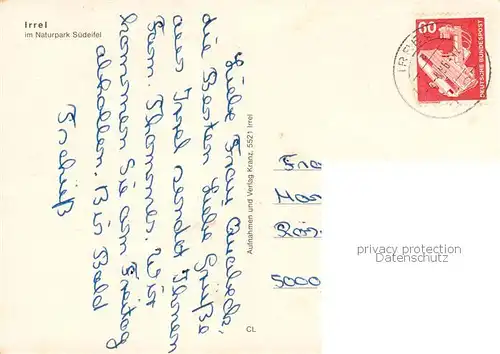 Irrel
im Naturpark Südeifel
60
DEUTSCHE BUNDESPOST
IRREL
Liebe Frau
die Besten liebe Grüße
aus Irrel sendet Ihnen
Fam. Thommes. Wir
kommen Sie am Freitag
abholen. Bis Bald
Aufnahmen und Verlag Kranz, 5521 Irrel
CL
Fra
5000
privacy protection
Datenschutz